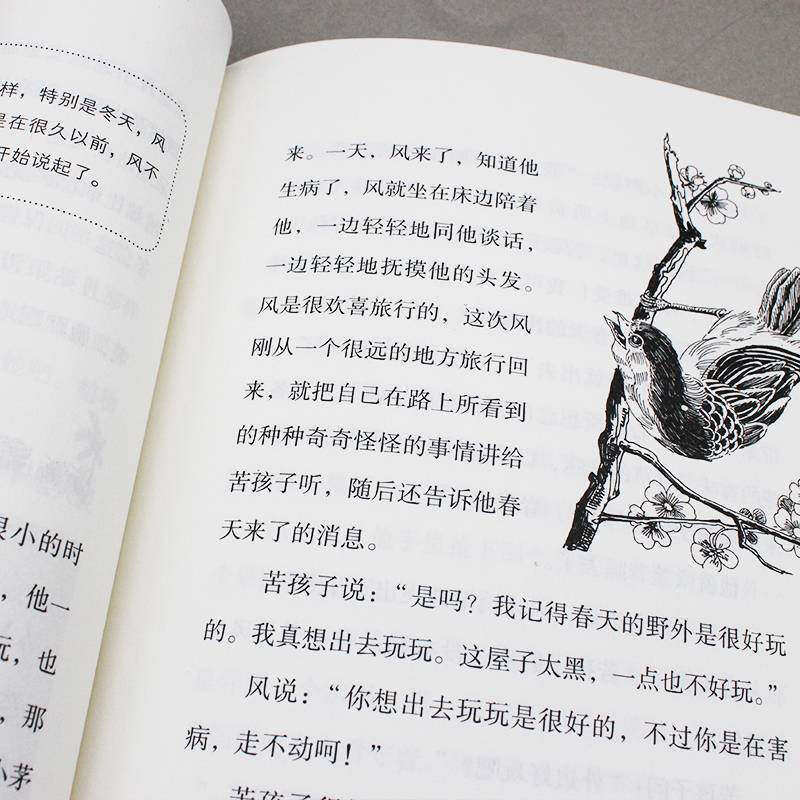 样，特别是冬天，风
是在很久以前，风不
开始说起了。
很小的时
，他一
玩，也
，那
小茅
来。一天，风来了，知道他
生病了，风就坐在床边陪着
他，一边轻轻地同他谈话，
一边轻轻地抚摸他的头发。
风是很欢喜旅行的，这次风
刚从一个很远的地方旅行回
来，就把自己在路上所看到
的种种奇奇怪怪的事情讲给
苦孩子听，随后还告诉他春
天来了的消息。
苦孩子说：“是吗？我记得春天的野外是很好玩
的。我真想出去玩玩。这屋子太黑，一点也不好玩。”
风说：“你想出去玩玩是很好的，不过你是在害
病，走不动呵！”
苦孩子